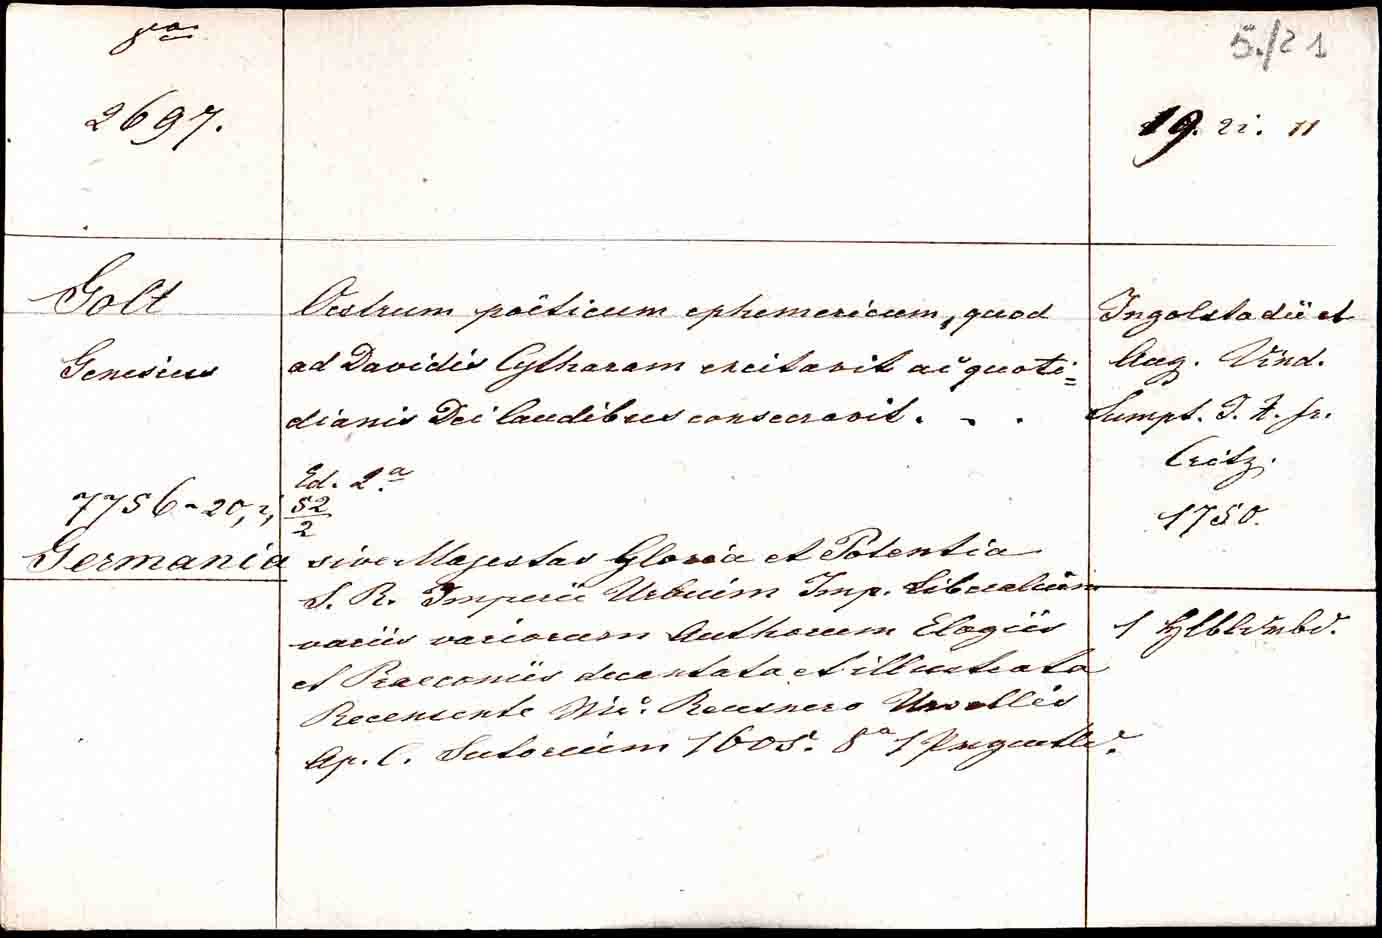 8vo.
5./21
2697.
19. 2i. 11
Golt
Oestrum poëticum ephemericum, quod
Ingolstadii et
Genesius
ad Davidis Cytharam excitavit ac quoti=
Aug. Vind.
dianis Dei laudibus consecravit. . .
Sumpt. J. F. Fr.
Ed. 2a.
Crätz.
7756-20,i,
52
2
1750.
Germania
sive Majestas Gloria et Potentia
S. R. Imperii Urbium Imp. Liberalium
variis variorum Authorum Elogiis
1 Hlbldrbd.
et Praeconiis decantata et illustrata
Recensente Nic. Reusnero Ursellis
Ap. C. Sutorium 1605. 8a 1 Prgmtbd.